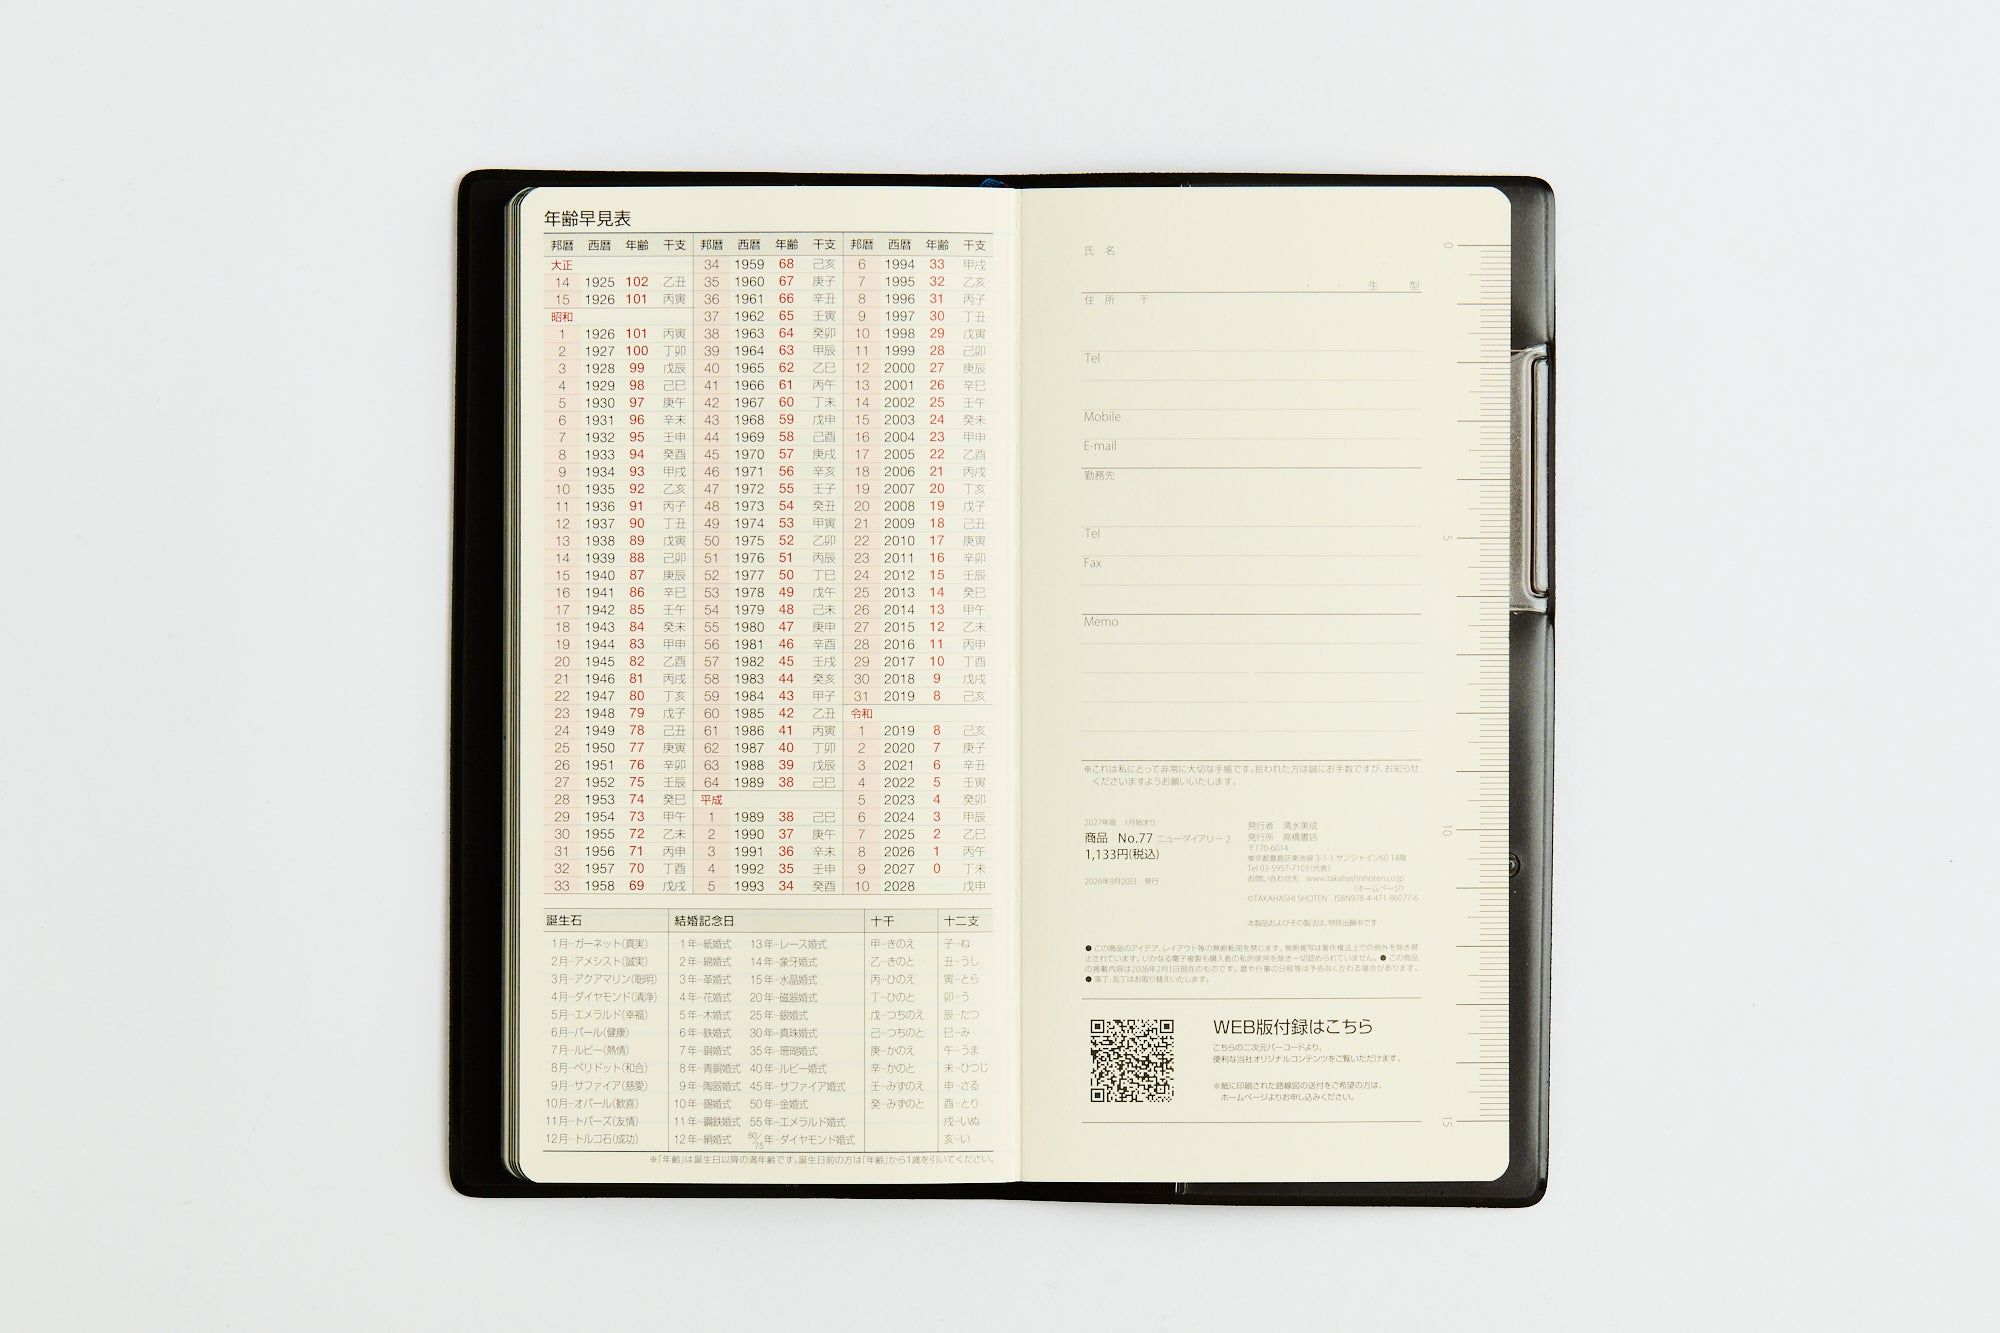 年齢早見表
邦暦 西暦 年齢 干支 邦暦 西暦 年齢 干支 邦暦 西暦 年齢 干支
大正 34 1959 68 己亥 6 1994 33 甲戌
14 1925 102 乙丑 35 1960 67 庚子 7 1995 32 乙亥
15 1926 101 丙寅 36 1961 66 辛丑 8 1996 31 丙子
昭和 37 1962 65 壬寅 9 1997 30 丁丑
1 1926 101 丙寅 38 1963 64 癸卯 10 1998 29 戊寅
2 1927 100 丁卯 39 1964 63 甲辰 11 1999 28 己卯
3 1928 99 戊辰 40 1965 62 乙巳 12 2000 27 庚辰
4 1929 98 己巳 41 1966 61 丙午 13 2001 26 辛巳
5 1930 97 庚午 42 1967 60 丁未 14 2002 25 壬午
6 1931 96 辛未 43 1968 59 戊申 15 2003 24 癸未
7 1932 95 壬申 44 1969 58 己酉 16 2004 23 甲申
8 1933 94 癸酉 45 1970 57 庚戌 17 2005 22 乙酉
9 1934 93 甲戌 46 1971 56 辛亥 18 2006 21 丙戌
10 1935 92 乙亥 47 1972 55 壬子 19 2007 20 丁亥
11 1936 91 丙子 48 1973 54 癸丑 20 2008 19 戊子
12 1937 90 丁丑 49 1974 53 甲寅 21 2009 18 己丑
13 1938 89 戊寅 50 1975 52 乙卯 22 2010 17 庚寅
14 1939 88 己卯 51 1976 51 丙辰 23 2011 16 辛卯
15 1940 87 庚辰 52 1977 50 丁巳 24 2012 15 壬辰
16 1941 86 辛巳 53 1978 49 戊午 25 2013 14 癸巳
17 1942 85 壬午 54 1979 48 己未 26 2014 13 甲午
18 1943 84 癸未 55 1980 47 庚申 27 2015 12 乙未
19 1944 83 甲申 56 1981 46 辛酉 28 2016 11 丙申
20 1945 82 乙酉 57 1982 45 壬戌 29 2017 10 丁酉
21 1946 81 丙戌 58 1983 44 癸亥 30 2018 9 戊戌
22 1947 80 丁亥 59 1984 43 甲子 31 2019 8 己亥
23 1948 79 戊子 60 1985 42 乙丑 令和
24 1949 78 己丑 61 1986 41 丙寅 1 2019 8 己亥
25 1950 77 庚寅 62 1987 40 丁卯 2 2020 7 庚子
26 1951 76 辛卯 63 1988 39 戊辰 3 2021 6 辛丑
27 1952 75 壬辰 64 1989 38 己巳 4 2022 5 壬寅
28 1953 74 癸巳 平成 5 2023 4 癸卯
29 1954 73 甲午 1 1989 38 己巳 6 2024 3 甲辰
30 1955 72 乙未 2 1990 37 庚午 7 2025 2 乙巳
31 1956 71 丙申 3 1991 36 辛未 8 2026 1 丙午
32 1957 70 丁酉 4 1992 35 壬申 9 2027 0 丁未
33 1958 69 戊戌 5 1993 34 癸酉 10 2028 戊申
誕生石 結婚記念日 十干 十二支
1月…ガーネット(真実) 1年…紙婚式 13年…レース婚式 甲…きのえ 子…ね
2月…アメシスト(誠実) 2年…綿婚式 14年…象牙婚式 乙…きのと 丑…うし
3月…アクアマリン(聡明) 3年…革婚式 15年…水晶婚式 丙…ひのえ 寅…とら
4月…ダイヤモンド(清浄) 4年…花婚式 20年…磁器婚式 丁…ひのと 卯…う
5月…エメラルド(幸福) 5年…木婚式 25年…銀婚式 戊…つちのえ 辰…たつ
6月…パール(健康) 6年…鉄婚式 30年…真珠婚式 己…つちのと 巳…み
7月…ルビー(熱情) 7年…銅婚式 35年…珊瑚婚式 庚…かのえ 午…うま
8月…ペリドット(和合) 8年…青銅婚式 40年…ルビー婚式 辛…かのと 未…ひつじ
9月…サファイア(慈愛) 9年…陶器婚式 45年…サファイア婚式 壬…みずのえ 申…さる
10月…オパール(歓喜) 10年…錫婚式 50年…金婚式 癸…みずのと 酉…とり
11月…トパーズ(友情) 11年…鋼鉄婚式 55年…エメラルド婚式 戌…いぬ
12月…トルコ石(成功) 12年…絹婚式 60/75年…ダイヤモンド婚式 亥…い
※「年齢」は誕生日以降の満年齢です。誕生日前の方は「年齢」から1歳を引いてください。
氏 名
・ ・ 生 型
住 所 〒
Tel
Mobile
E-mail
勤務先
Tel
Fax
Memo
※これは私にとって非常に大切な手帳です。拾われた方は誠にお手数ですが、お知らせ
くださいますようお願いいたします。
2027年版 1月始まり
商品 No.77 ニューダイアリー 2
1,133円(税込)
2026年9月20日 発行
発行者 清水美成
発行所 高橋書店
〒170-6014
東京都豊島区東池袋 3-1-1 サンシャイン60 14階
Tel 03-5957-7103(代表)
お問い合わせ先 www.takahashishoten.co.jp
(ホームページ)
©TAKAHASHI SHOTEN ISBN978-4-471-86077-6
本製品およびその製法は、特許出願中です
● この商品のアイデア、レイアウト等の無断転用を禁じます。無断複写は著作権法上での例外を除き禁
止されています。いかなる電子複製も購入者の私的使用を除き一切認められていません。● この商品
の掲載内容は2026年2月1日現在のものです。暦や行事の日程等は予告なくかわる場合があります。
● 落丁・乱丁はお取り替えいたします。
WEB版付録はこちら
こちらの二次元バーコードより、
便利な当社オリジナルコンテンツをご覧いただけます。
※紙に印刷された路線図の送付をご希望の方は、
ホームページよりお申し込みください。
0
5
10
15